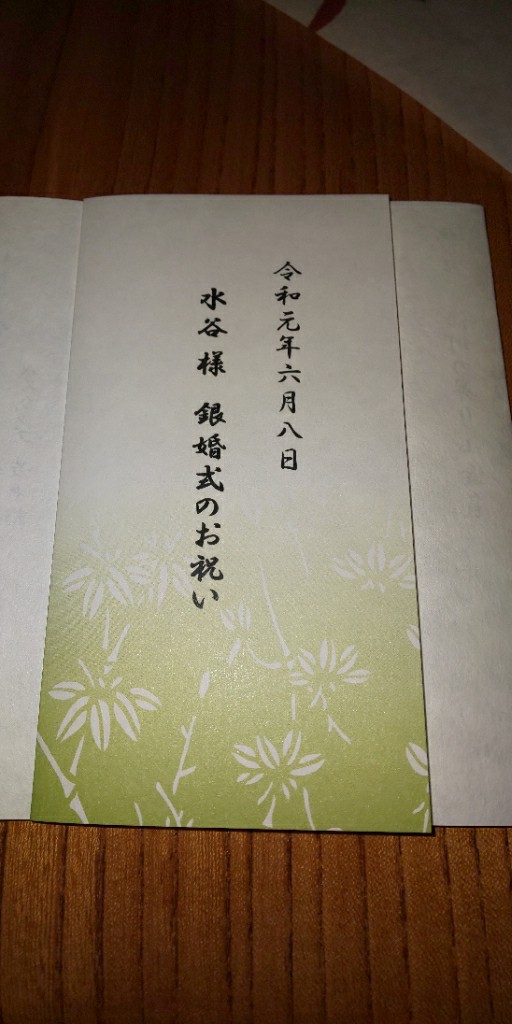 令和元年六月八日
水谷様 銀婚式のお祝い